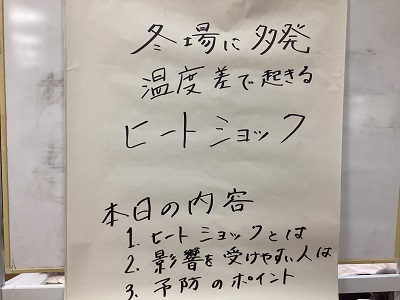 冬場に多発
温度差で起きる
ヒートショック
本日の内容
1. ヒートショックとは
2. 影響を受けやすい人は
3. 予防のポイント